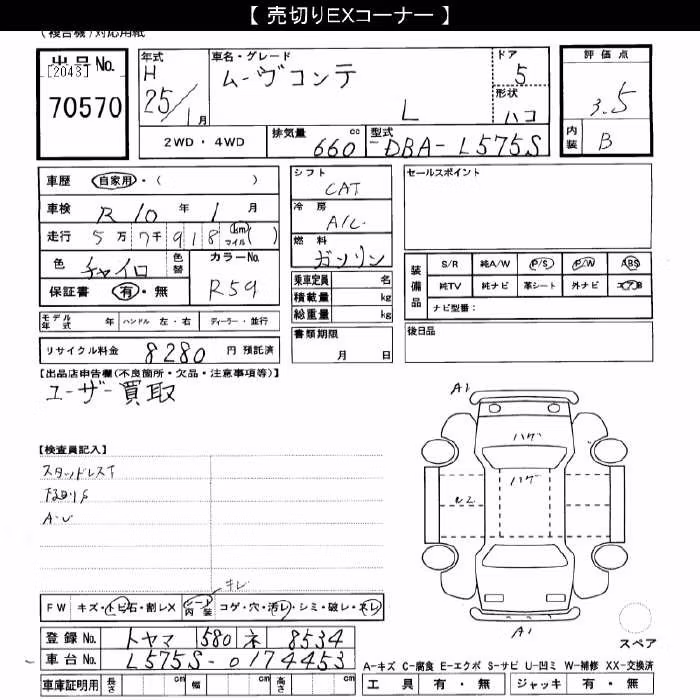 【 売切りEXコーナー 】
(複合機)対応用紙
出品No.
[2043]
70570
年式 H 25/1月
車名・グレード ムーヴコンテ L
ドア 5
形状 ハコ
評価点 3.5
内装 B
2WD・4WD
排気量 660 cc
型式 DBA-L575S
車歴 自家用・( )
車検 R10年1月
走行 5万7千918 (km マイル)( )
色 チャイロ 色替
カラーNo. R59
保証書 有・無
モデル年式 年 ハンドル 左・右 ディーラー・並行
リサイクル料金 8280 円 預託済
シフト CAT
冷房 A/C
燃料 ガソリン
乗車定員 名
積載量 kg
総重量 kg
書類期限 月 日
セールスポイント
装備品 S/R 純A/W P/S P/W ABS
純TV 純ナビ 革シート 外ナビ エアB
ナビ型番:
後日品
【出品店申告欄(不良箇所・欠品・注意事項等)】
ユーザー買取
【検査員記入】
スタッドレスT
下回りS
A・U
A1
ハゲ
ハゲ
A1
スペア
キレ
FW キズ・トビ石・割レX シート内装 コゲ・穴・汚レ・シミ・破レ・スレ
登録No. トヤマ 580 ネ 8534
車台No. L575S-0174453
車庫証明用 長さ cm 幅 cm 高さ cm
A-キズ C-腐食 E-エクボ S-サビ U-凹ミ W-補修 XX-交換済
工具 有・無 ジャッキ 有・無